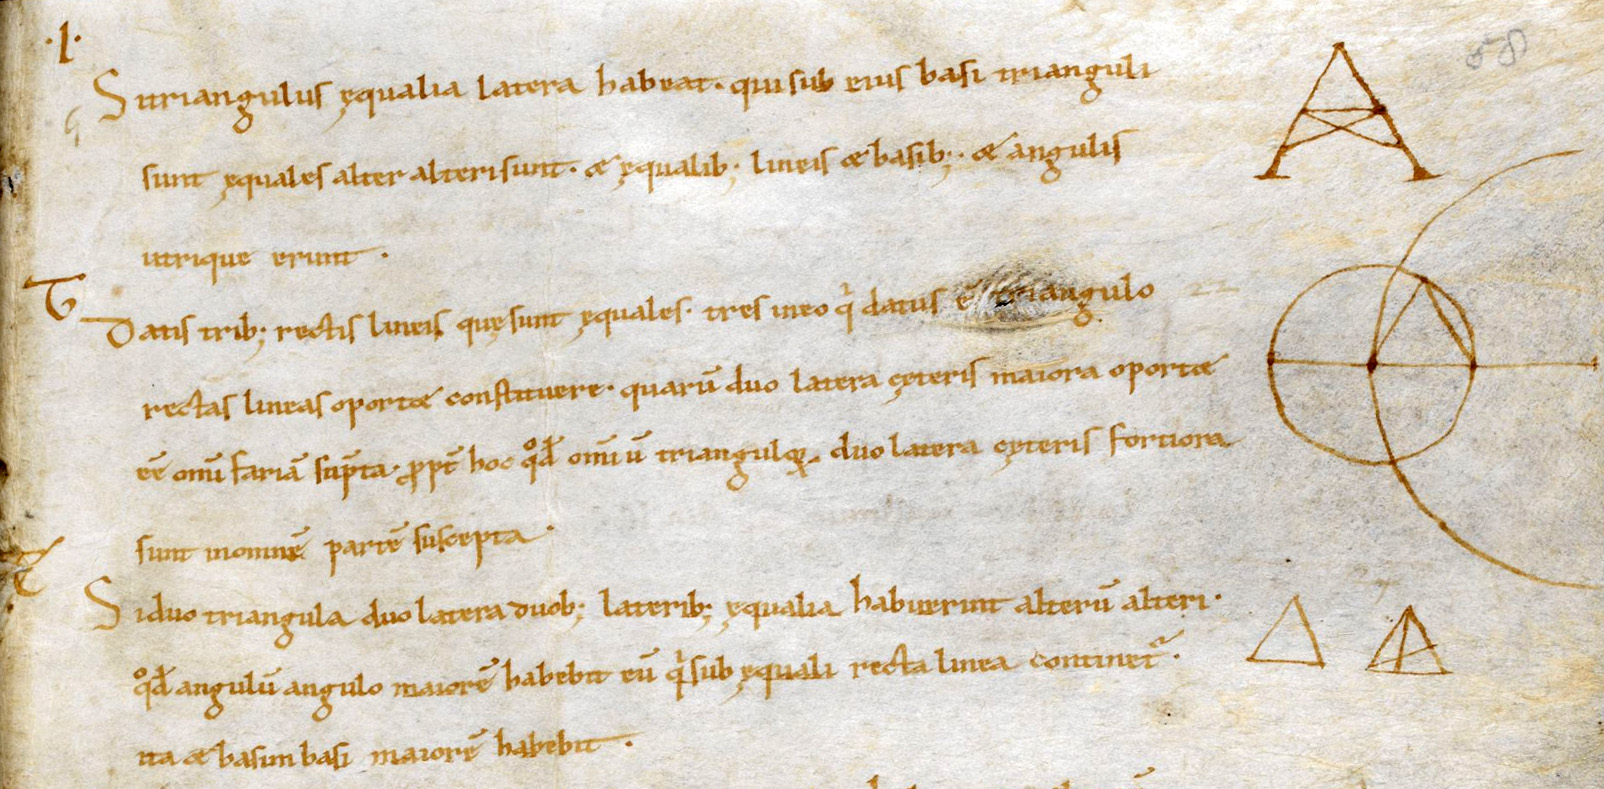 ·I·
Si triangulus ęqualia latera habeat· qui sub eius basi trianguli
sunt ęquales alter alteri sunt· & ęqualib; lineis & basib;· & angulis
utrique erunt·
Datis trib; rectis lineis quę sunt ęquales· tres in eo qͥ datus ē triangulo
rectas lineas oport& constituere· quarū duo latera cęteris maiora oport&
eē omīfariā sūpta· ꝓpt̄ hoc qͦd omīū triangulorꝝ· duo latera cęteris fortiora
sunt in omnē partē suscepta·
Si duo triangula duo latera duob; laterib; ęqualia habuerint alterū alteri·
qͦd angulū angulo maiorē habebit eū qͥ sub ęquali recta linea continet᷑·
ita & basim basi maiorē habebit·